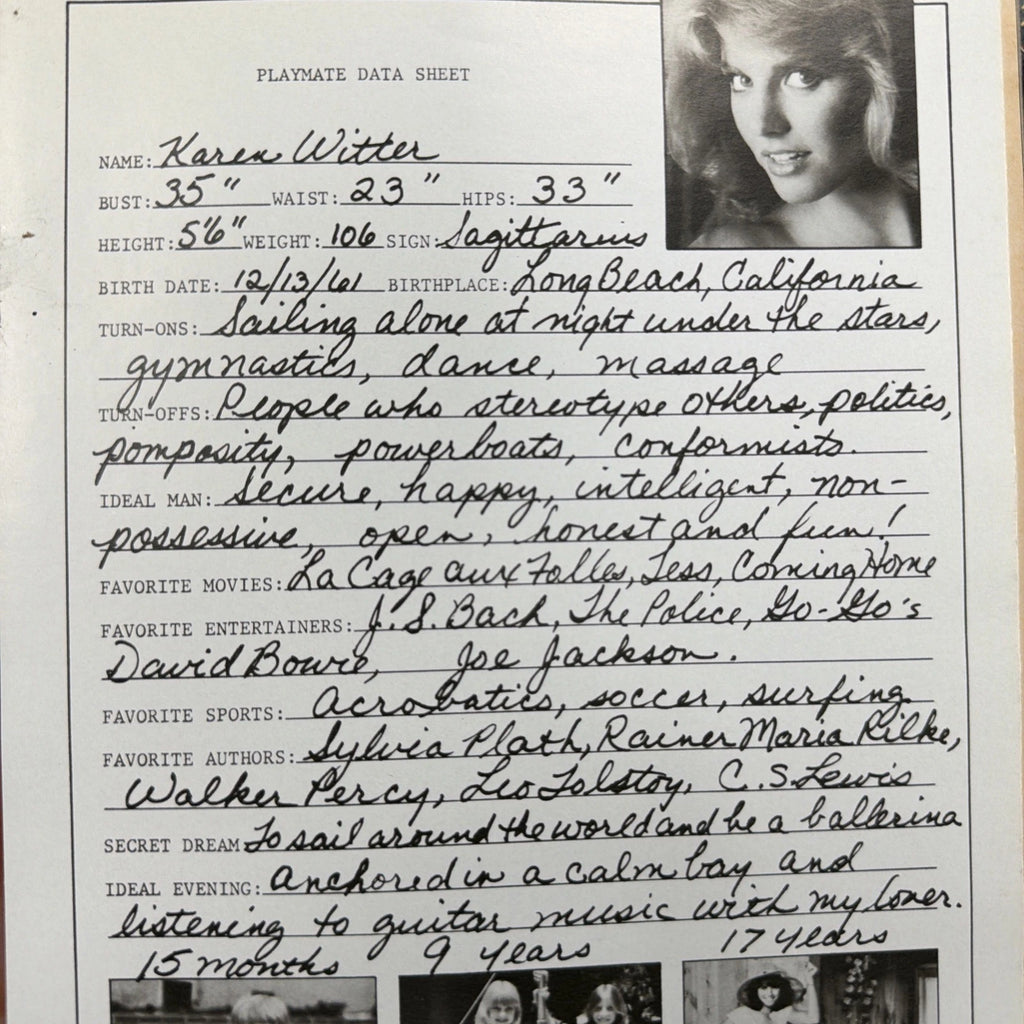 PLAYMATE DATA SHEET
NAME: Karen Witter
BUST: 35" WAIST: 23" HIPS: 33"
HEIGHT: 5'6" WEIGHT: 106 SIGN: Sagittarius
BIRTH DATE: 12/13/61 BIRTHPLACE: Long Beach, California
TURN-ONS: Sailing alone at night under the stars,
gymnastics, dance, massage
TURN-OFFS: People who stereotype others, politics,
pomposity, powerboats, conformists.
IDEAL MAN: Secure, happy, intelligent, non-
possessive, open, honest and fun!
FAVORITE MOVIES: La Cage aux Folles, Tess, Coming Home
FAVORITE ENTERTAINERS: J. S. Bach, The Police, Go-Go's
David Bowie, Joe Jackson.
FAVORITE SPORTS: Acrobatics, soccer, surfing
FAVORITE AUTHORS: Sylvia Plath, Rainer Maria Rilke,
Walker Percy, Leo Tolstoy, C.S. Lewis
SECRET DREAM To sail around the world and be a ballerina
IDEAL EVENING: Anchored in a calm bay and
listening to guitar music with my lover.
15 months 9 years 17 years